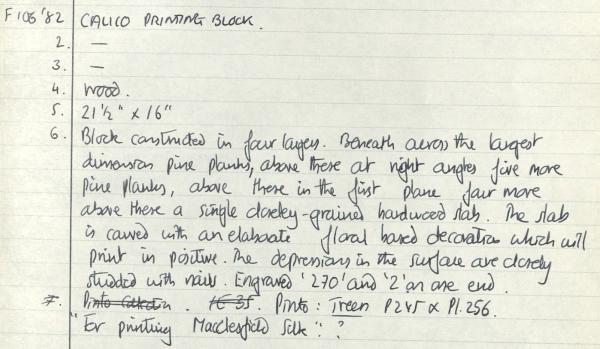 F106'82 CALICO PRINTING BLOCK.
2. —
3. —
4. Wood.
5. 21½" x 16"
6. Block constructed in four layers. Beneath across the largest
dimension pine planks, above these at right angles five more
pine planks, above these in the first plane four more
above these a single closely-grained hardwood slab. The slab
is carved with an elaborate floral based decoration which will
print in positive. The depressions in the surface are closely
studded with nails. Engraved '270' and '2' on one end.
7. Pinto Collection. Pinto: Treen P245 & Pl.256.
"For printing Macclesfield Silk": ?